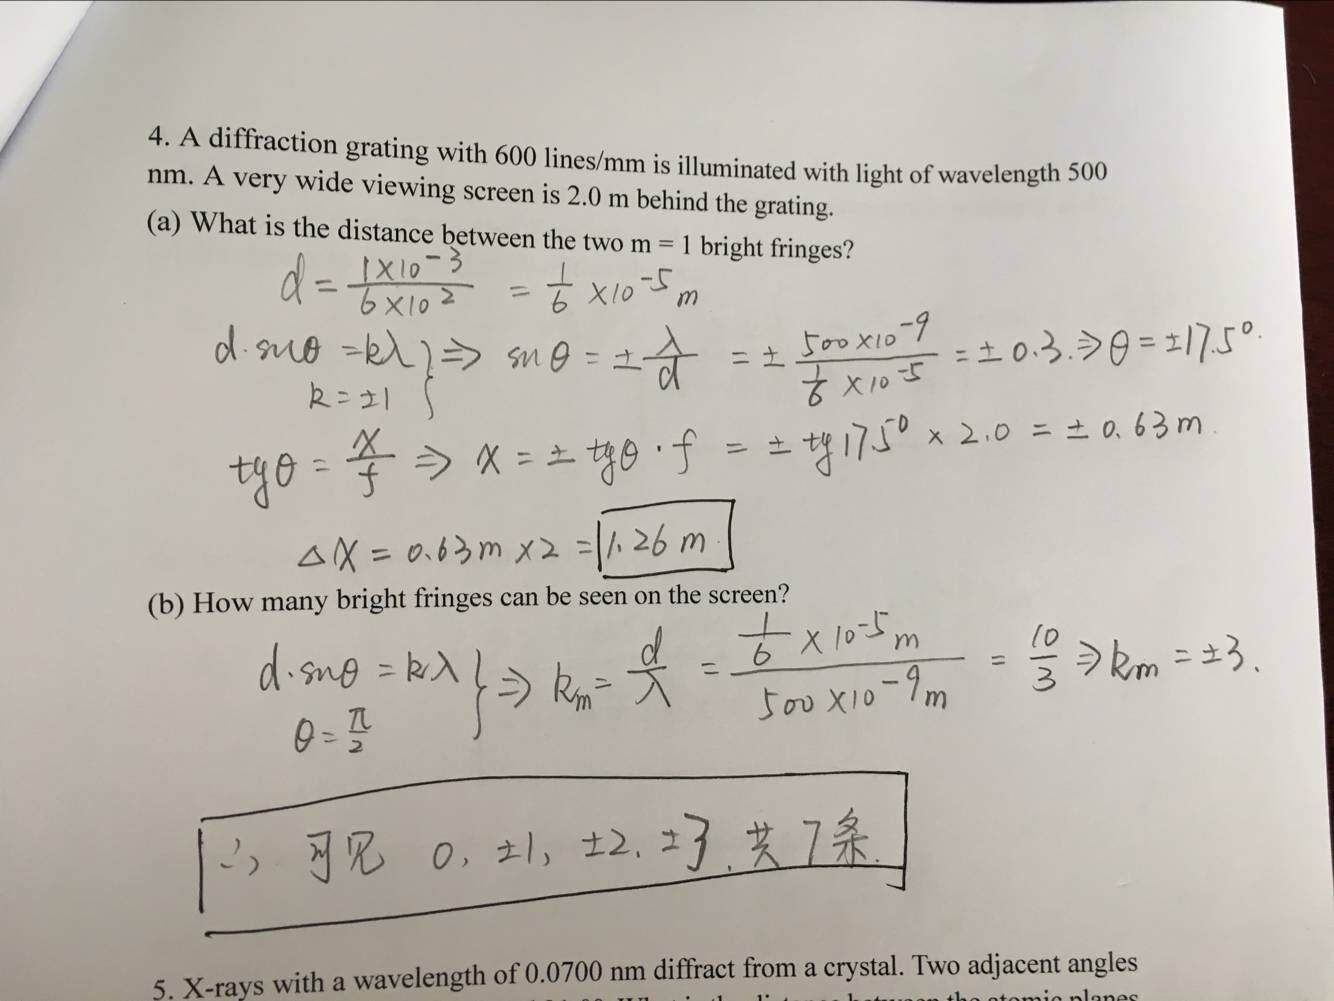 4. A diffraction grating with 600 lines/mm is illuminated with light of wavelength 500
nm. A very wide viewing screen is 2.0 m behind the grating.
(a) What is the distance between the two m = 1 bright fringes?
d = \frac{1×10^{-3}}{6×10^{2}} = \frac{1}{6} ×10^{-5} m
d·sinθ = kλ } ⇒ sinθ = ± \frac{λ}{d} = ± \frac{500×10^{-9}}{\frac{1}{6}×10^{-5}} = ± 0.3. ⇒ θ = ±17.5°.
k = ±1
tgθ = \frac{x}{f} ⇒ x = ± tgθ · f = ± tg17.5° × 2.0 = ± 0.63m.
Δx = 0.63m ×2 = 1.26 m.
(b) How many bright fringes can be seen on the screen?
d·sinθ = kλ } ⇒ k_m = \frac{d}{λ} = \frac{\frac{1}{6}×10^{-5}m}{500×10^{-9}m} = \frac{10}{3} ⇒ k_m = ±3.
θ = \frac{π}{2}
∴ 可见 0, ±1, ±2, ±3. 共7条.
5. X-rays with a wavelength of 0.0700 nm diffract from a crystal. Two adjacent angles